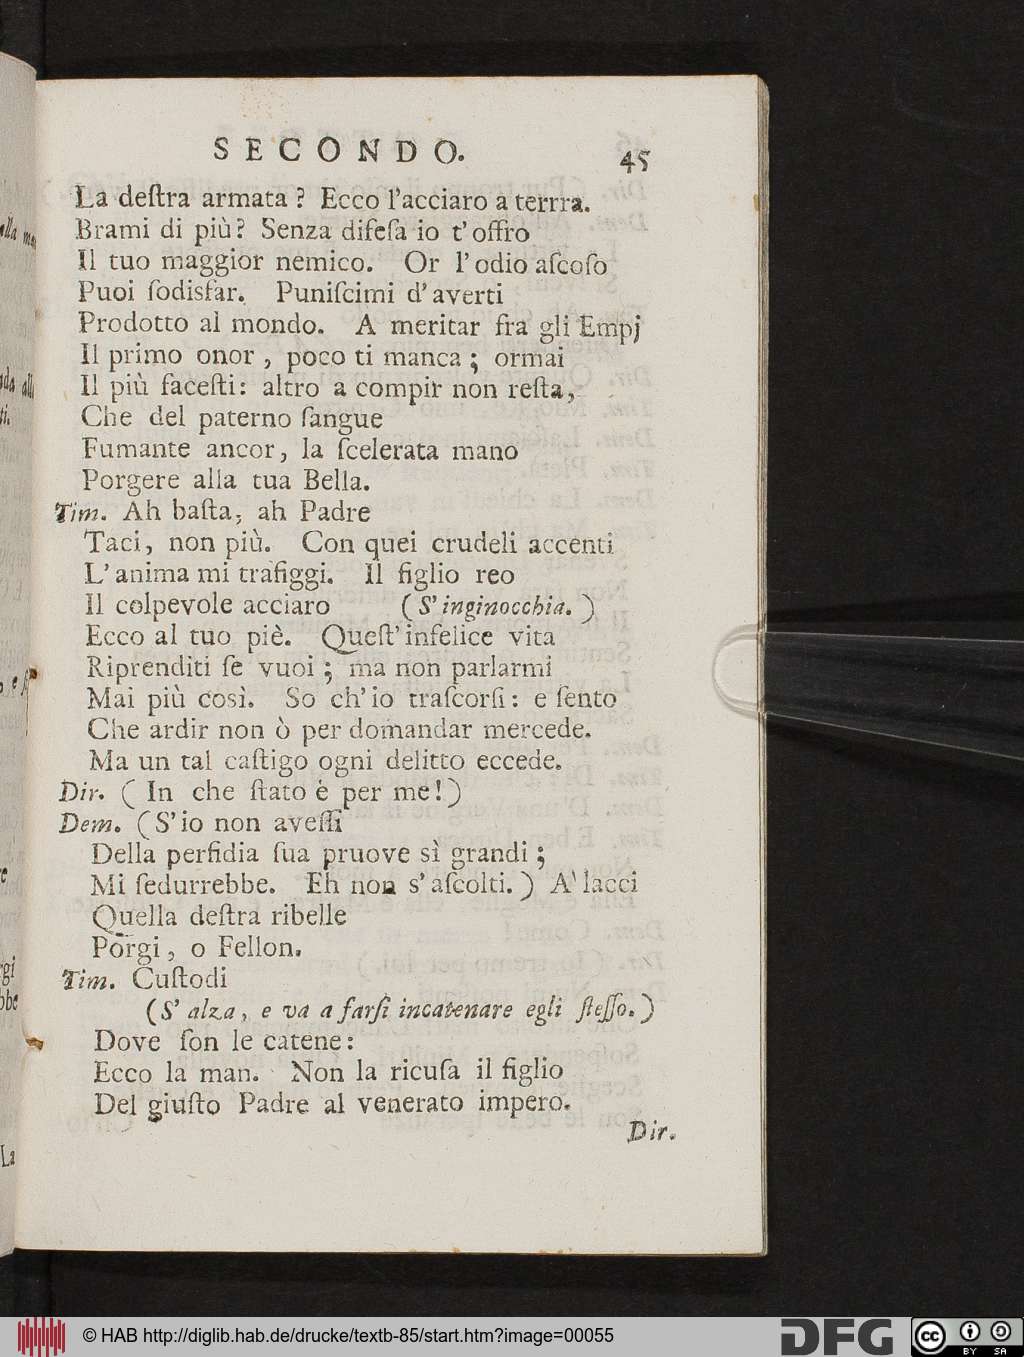 SECONDO. 45
La deſtra armata? Ecco l'acciaro a terrra.
Brami di più? Senza difeſa io t'offro
Il tuo maggior nemico. Or l'odio aſcoſo
Puoi ſodisfar. Puniſcimi d'averti
Prodotto al mondo. A meritar fra gli Empj
Il primo onor, poco ti manca; ormai
Il più faceſti: altro a compir non reſta,
Che del paterno ſangue
Fumante ancor, la ſcelerata mano
Porgere alla tua Bella.
Tim. Ah baſta, ah Padre
Taci, non più. Con quei crudeli accenti
L'anima mi trafiggi. Il figlio reo
Il colpevole acciaro (S'inginocchia.)
Ecco al tuo piè. Queſt'infelice vita
Riprenditi ſe vuoi; ma non parlarmi
Mai più così. So ch'io traſcorſi: e ſento
Che ardir non ò per domandar mercede.
Ma un tal caſtigo ogni delitto eccede.
Dir. (In che ſtato è per me!)
Dem. (S'io non aveſſi
Della perfidia ſua pruove sì grandi;
Mi ſedurrebbe. Eh non s'aſcolti.) A' lacci
Quella deſtra ribelle
Porgi, o Fellon.
Tim. Cuſtodi
(S'alza, e va a farſi incatenare egli ſteſſo.)
Dove ſon le catene:
Ecco la man. Non la ricuſa il figlio
Del giuſto Padre al venerato impero.
Dir.
La
© HAB http://diglib.hab.de/drucke/textb-85/start.htm?image=00055
DFG
cc BY SA